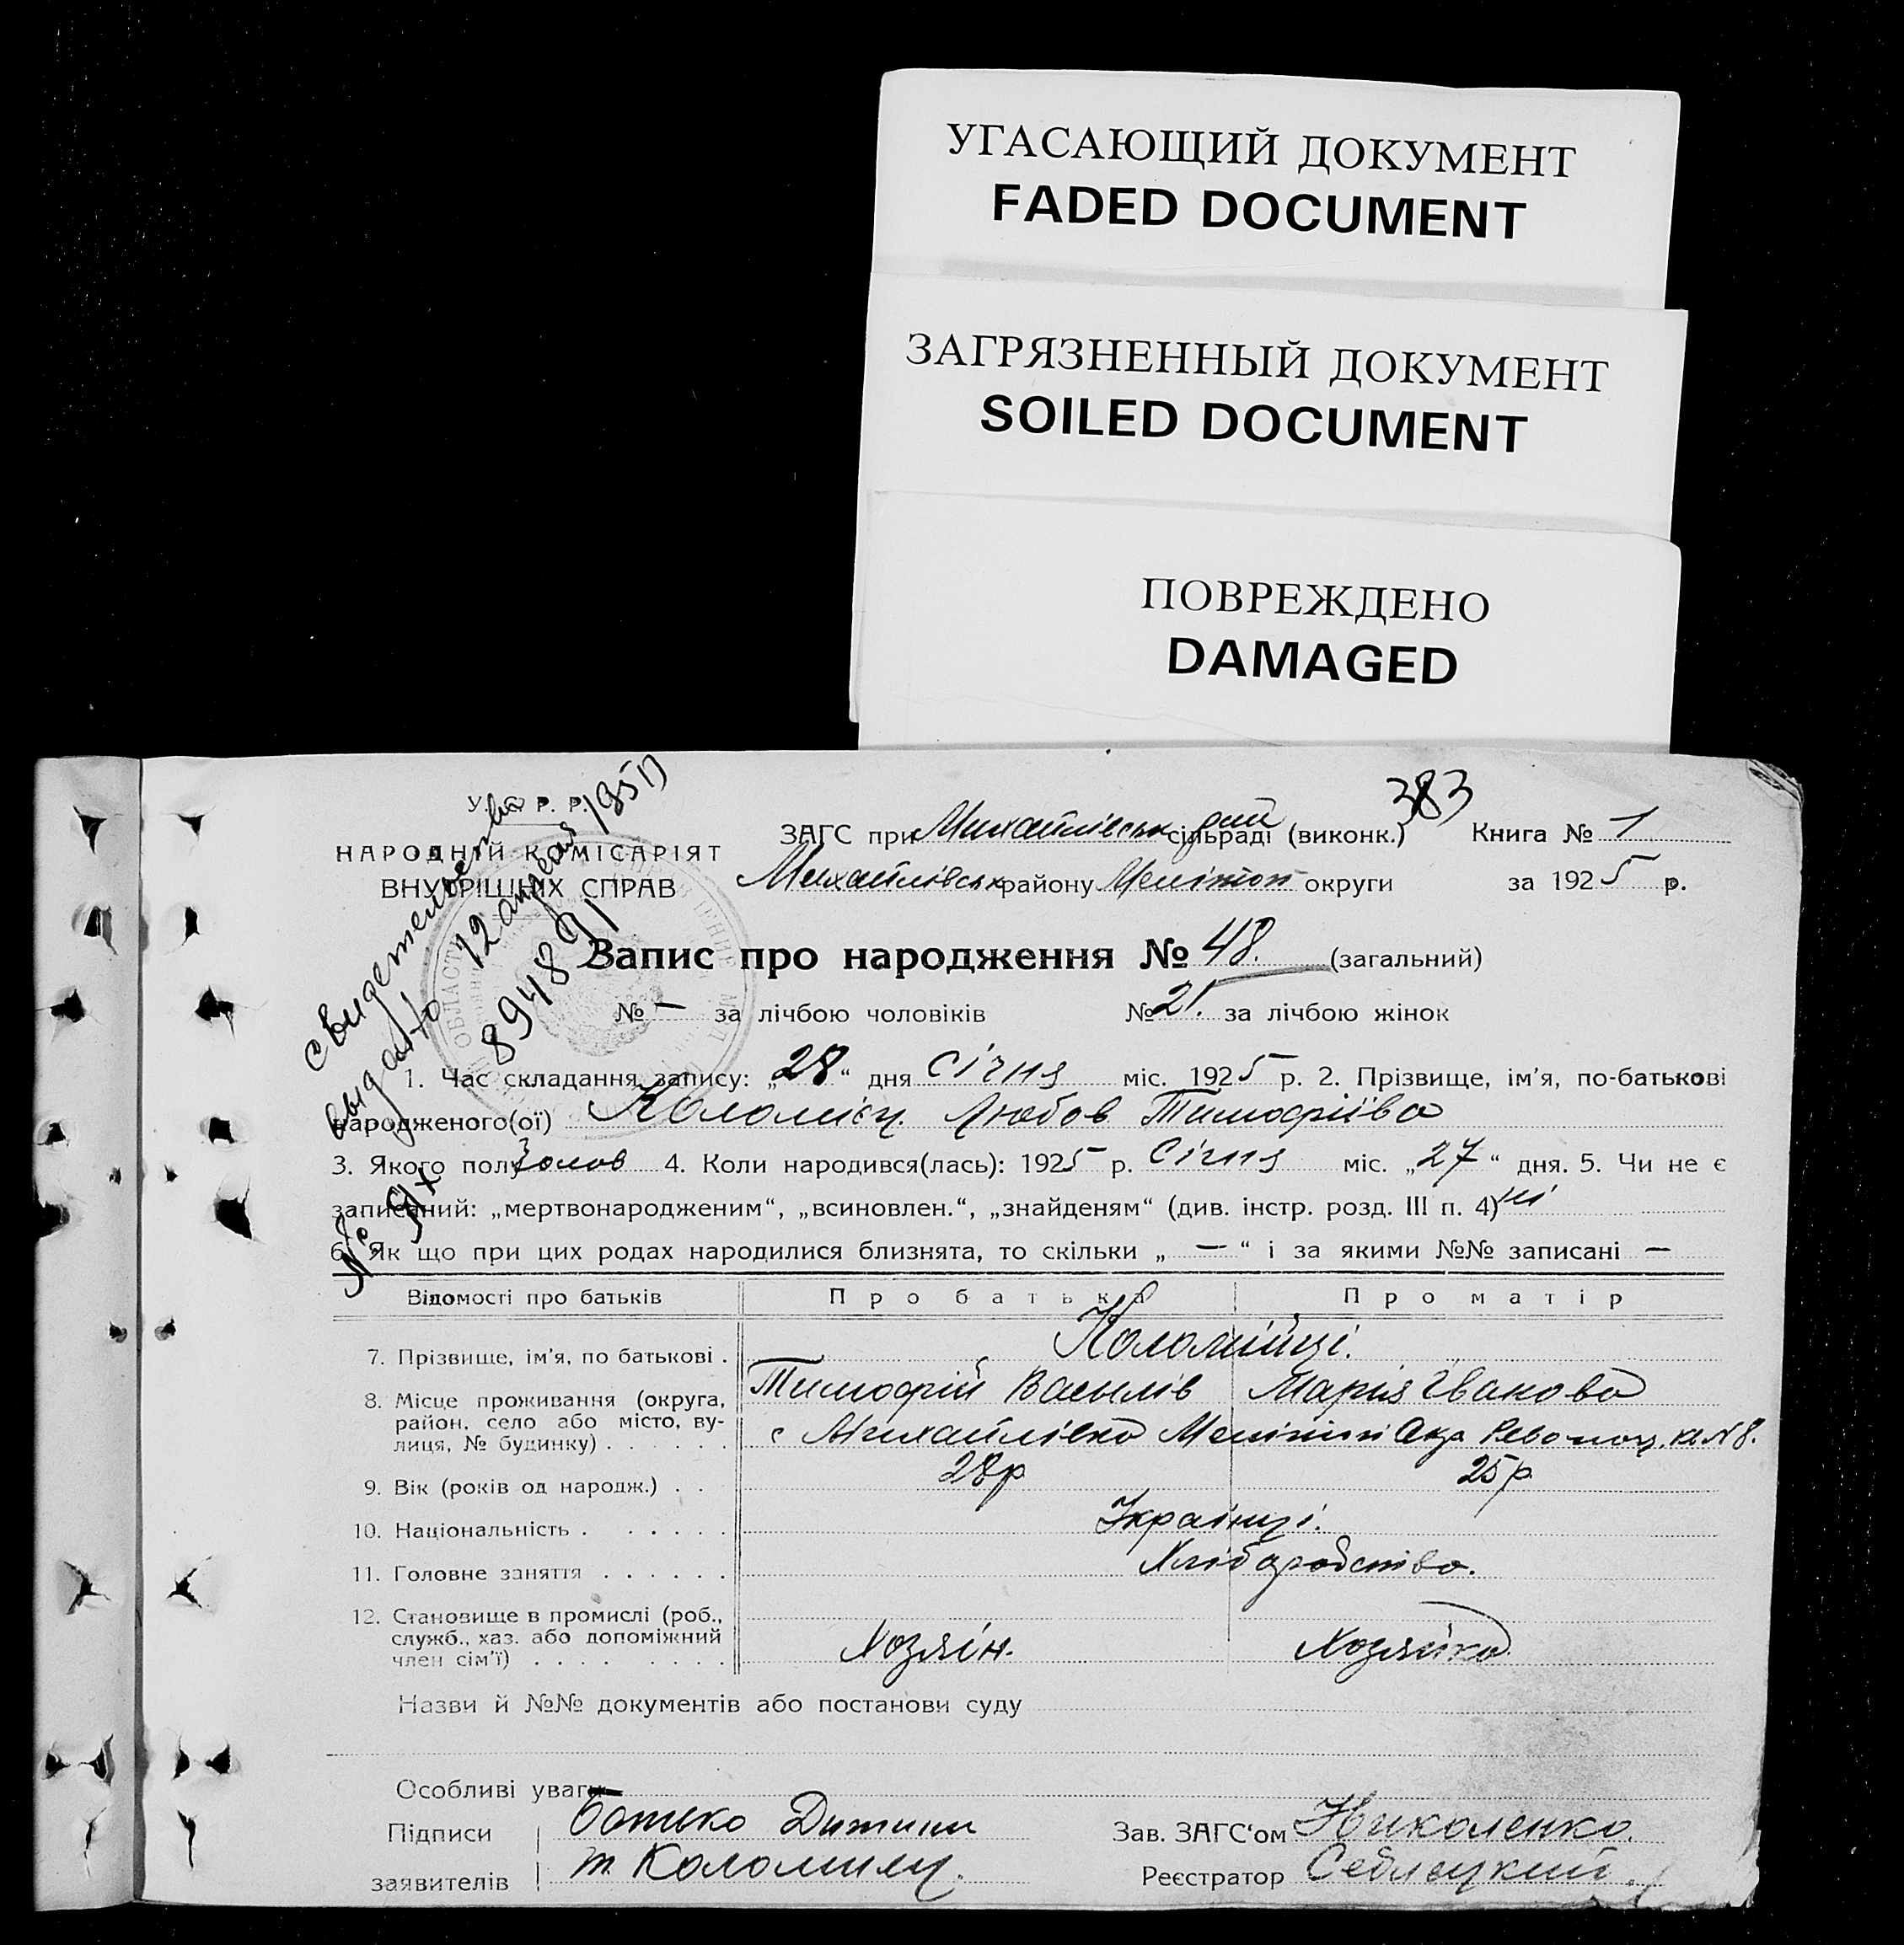 УГАСАЮЩИЙ ДОКУМЕНТ
FADED DOCUMENT
ЗАГРЯЗНЕННЫЙ ДОКУМЕНТ
SOILED DOCUMENT
ПОВРЕЖДЕНО
DAMAGED
383
У. С. Р. Р.
НАРОДНІЙ КОМІСАРІЯТ
ВНУТРІШНІХ СПРАВ
Свидетельство
выдано 12 апреля
894891
ЗАГС при Михайлівськ сільраді (виконк.) Книга № 1
Михайлівськ району Меліток округи за 1925 р.
Запис про народження № 48. (загальний)
№ — за лічбою чоловіків № 21. за лічбою жінок
1. Час складання запису: „28“ дня Січня міс. 1925 р. 2. Прізвище, ім’я, по-батькові
народженого(ої) Коломієц. Любов Тимофіїва
3. Якого полу 4. Коли народився(лась): 1925 р. Січня міс. „27“ дня. 5. Чи не є
записаний: „мертвонародженим“, „всиновлен.“, „знайденям“ (див. інстр. розд. III п. 4) ні
6. Як що при цих родах народилися близнята, то скільки „ — “ і за якими №№ записані —
Відомості про батьків Про батька Про матір
7. Прізвище, ім’я, по батькові . Коломійці.
Тимофій Василів Марія Іванова
8. Місце проживання (округа,
район, село або місто, ву-
лиця, № будинку) . . . . . . с Михайлівка Окр Революц. №8.
9. Вік (років од народж.) . . 28р 25р.
10. Національність . . . . . . Українці.
11. Головне заняття . . . . . . Хліборобство.
12. Становище в промислі (роб.,
служб., хаз. або допоміжний
член сім’ї) . . . . . . . . Хозяін. Хозяйка
Назви й №№ документів або постанови суду
Особливі уваги —
Підписи Батько Дитини
заявителів т. Коломиец.
Зав. ЗАГС‘ом Николенко.
Реєстратор